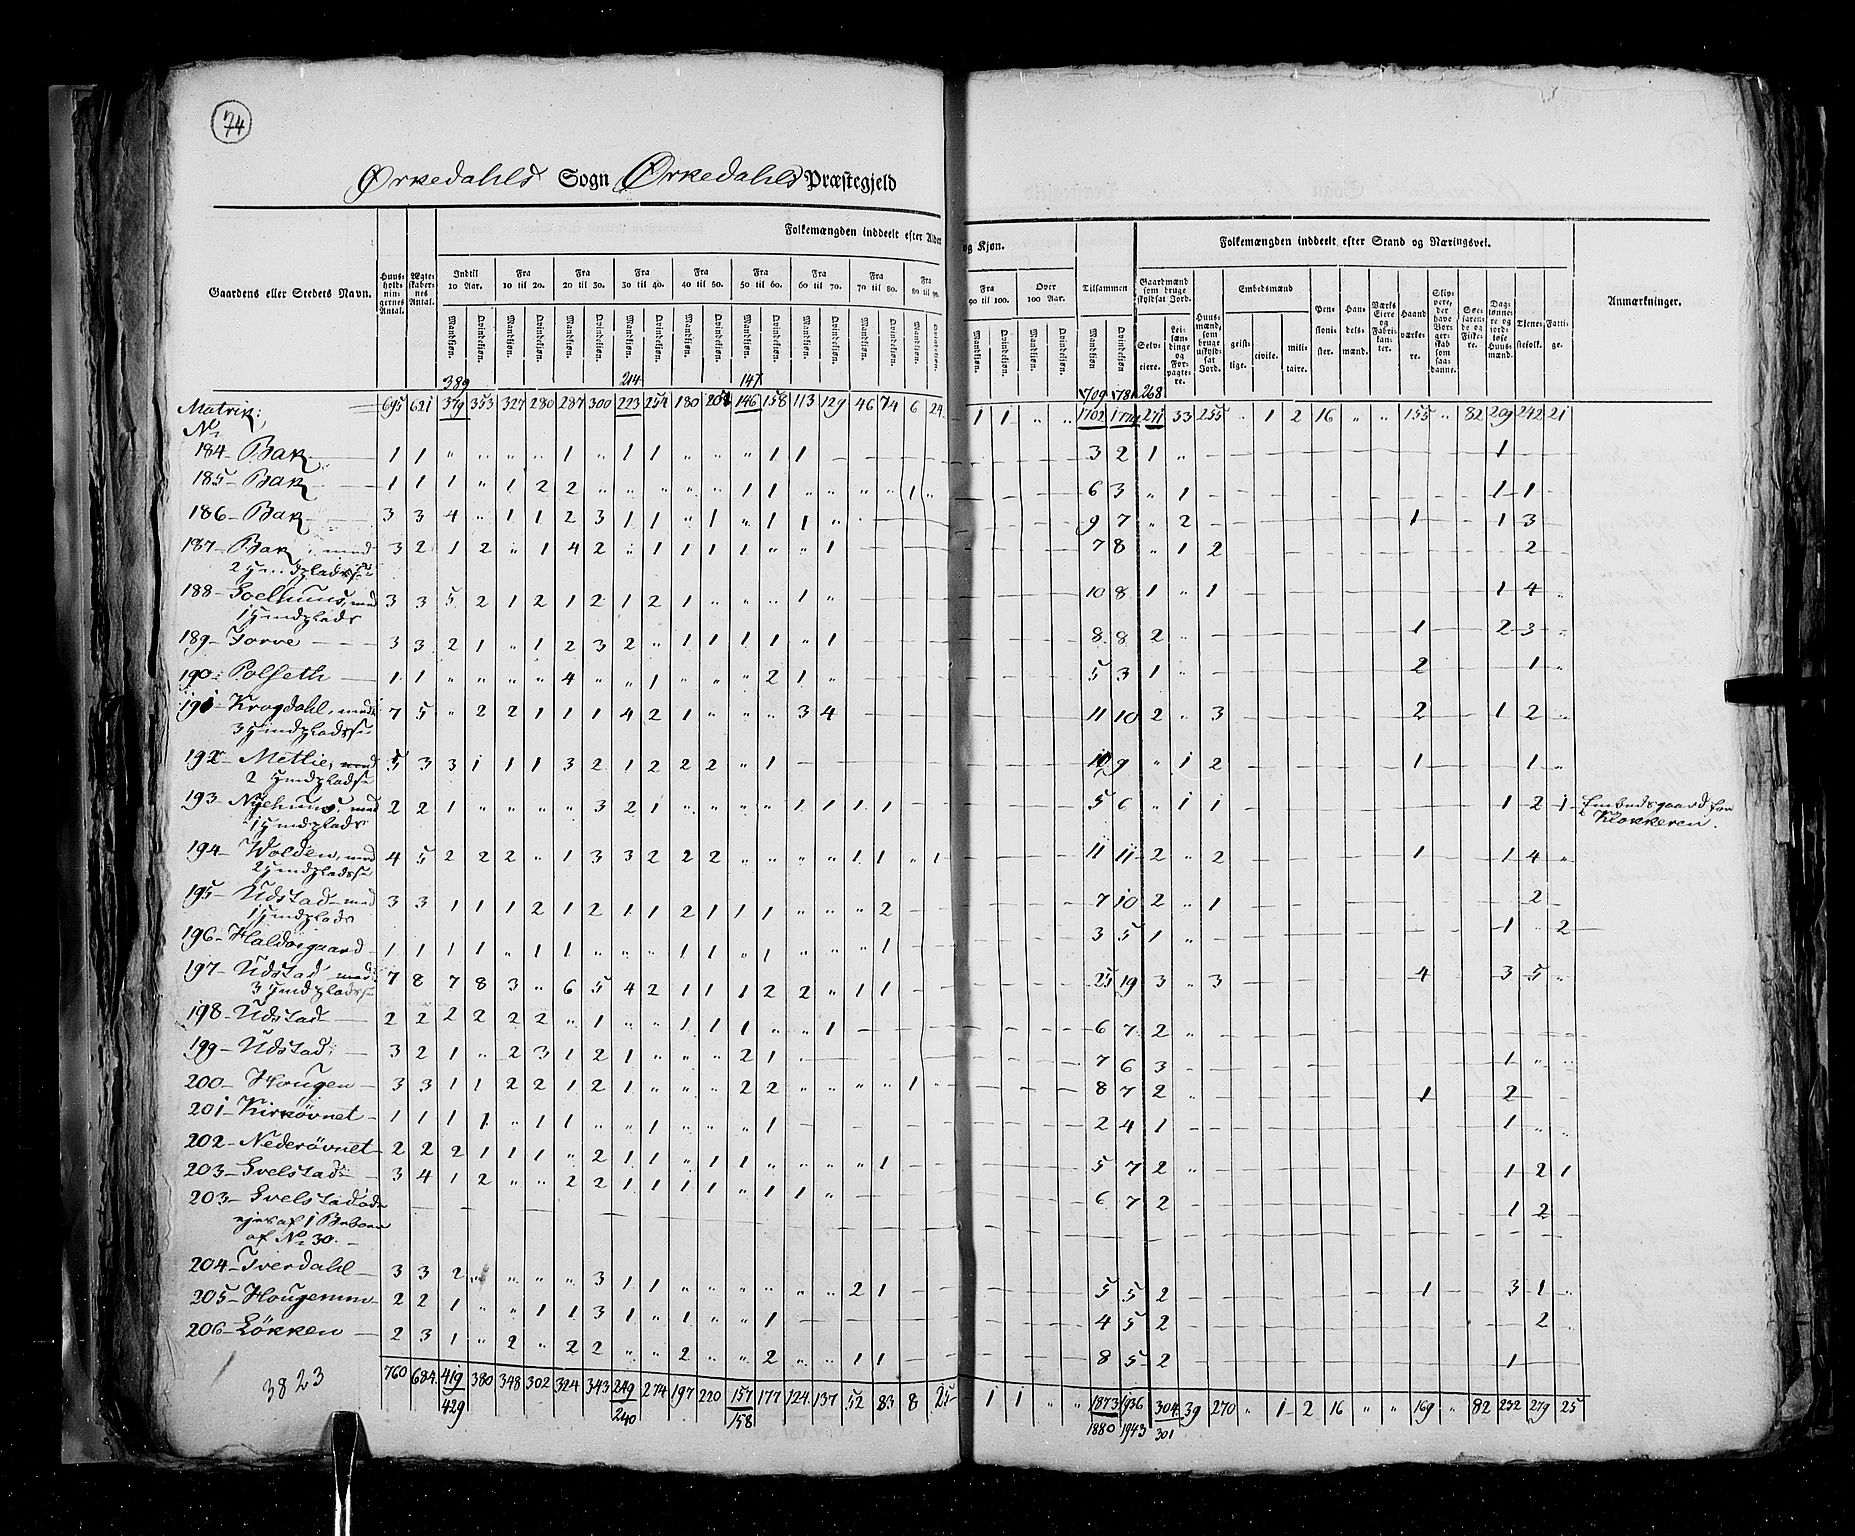 74
Ørkedahls Sogn Ørkedahls Præstegjeld
Gaardens eller Stedets Navn. Huus-hold-nin-gernes Antal. Ægte-skaber-nes Antal. Folkemængden inddeelt efter Alder og Kjøn. Folkemængden inddeelt efter Stand og Næringsvei. Anmærkninger.
Indtil 10 Aar. Fra 10 til 20. Fra 20 til 30. Fra 30 til 40. Fra 40 til 50. Fra 50 til 60. Fra 60 til 70. Fra 70 til 80. Fra 80 til 90. Fra 90 til 100. Over 100 Aar. Tilsammen
Mandkjøn. Qvindekjøn.
Gaardmænd som bruge skyldsat Jord. Selv-eiere. Lei-læn-dinge og For-pagte-re. Huus-mænd, som bruge uskyld-sat Jord. Embedsmænd geist-lige. civile. mili-taire. Pen-sioni-ster. Han-dels-mænd. Værks Eiere og Fabri-kan-ter. Haand værke-re. Skip-pere, der have Bor-ger-skab som saa-danne. Søe-faren-de og Fiske-re. Dag-lønne-re og jord-løse Huus-mænd. Tjene-stefolk. Fatti-ge.
389 214 147 1709 1781 268
Matrik: 695 621 379 353 327 280 287 300 223 254 180 201 146 158 113 129 46 74 6 24 1 1 " " 1702 1774 271 33 255 " 1 2 16 " " 155 " 82 209 242 21
No
184 - Bak 1 1 " " " " 1 " 1 1 " " " 1 1 3 2 1 " 1
185 - Bak 1 1 1 " 1 2 2 " " " " " 1 1 " " " " 1 " 6 3 " 1 1 1
186 - Bak 3 3 4 " 1 1 2 3 1 1 " 1 " 1 1 " 9 7 " 2 1 1 3
187 - Bak, med 3 2 1 2 " 1 4 2 " 1 1 1 1 " " 1 7 8 " 1 2 2
188 - 3 3 5 2 1 2 1 2 1 2 1 " " " 1 " 10 8 1 " 1 1 4 "
189 - Forve 3 3 2 1 " 1 2 3 2 " 1 1 1 1 " 1 8 8 2 " 1 2 3 "
190 - Polseth 1 1 " " " " 4 " " 1 " " " 2 1 " 5 3 1 " 2 1 "
191 - Krogdahl, med 7 5 " 2 2 1 1 1 4 2 1 " " " 3 4 11 10 2 " 3 2 1 2 "
192 - Metlie, med 5 3 3 1 1 1 3 2 1 2 2 2 " 1 9 " 1 2 1 1 "
193 - Nyehuus, med 2 2 1 " " " " 3 2 1 " " " " 1 1 1 1 5 6 " 1 1 1 2 1 Embedsgaard for
Klokkeren.
194 - Wolden, med 4 5 2 2 2 " 1 3 3 2 2 2 " " " " 1 1 " 1 11 11 2 " 2 1 1 4 "
195 - Udstad med 3 3 1 1 1 2 1 2 1 1 2 1 1 1 " " " 2 7 10 2 " 1 2
196 - Haldosgaard 1 1 1 1 " 1 1 " " " 1 1 " 1 " " " 1 3 5 1 " 1 " 2
197 - Udstad med 7 8 7 8 3 " 6 5 4 2 1 1 1 2 2 " 1 1 25 19 3 " 3 4 3 5 "
198 - Udstad 2 2 2 2 2 2 " 1 " " 1 1 1 " " 1 6 7 2 "
199 - Udstad 3 2 1 " 2 3 1 2 1 " " " 2 1 " 7 6 3 1 " "
200 - Hougen 3 3 1 1 2 2 1 2 1 " " " 2 2 " " " " 1 " 8 7 2 " 1 2
201 - Kirkøvnet 1 1 1 1 " 1 1 " " 1 " " " 1 2 4 1 " 1 " "
202 - Nederøvnet 2 2 2 1 1 1 " 2 1 1 " 1 1 " " " " 1 5 7 2 " 1 2 1
203 - Evelstad 3 4 1 2 " " 2 2 1 1 1 1 " 1 1 " 6 7 2 1 2
203 -
ejes af 1
af No 30.
204 - Tverdahl 3 3 2 " " " " 3 1 1 " " " " " " 2 1 5 5 2 1 3 1 "
205 - 2 2 1 " " 1 1 3 1 " 1 " " 1 4 5 2 2
206 - Løkken 2 3 1 " 2 " 2 2 " " 2 " " 2 " " 1 1 8 5 2 1
3823 760 684 419 380 348 302 324 343 249 274 197 220 157 177 124 137 52 83 8 25 1 1 " " 1873 1936 304 39 270 " 1 2 16 " " 169 " 82 232 279 25
429 240 158 1880 1943 301